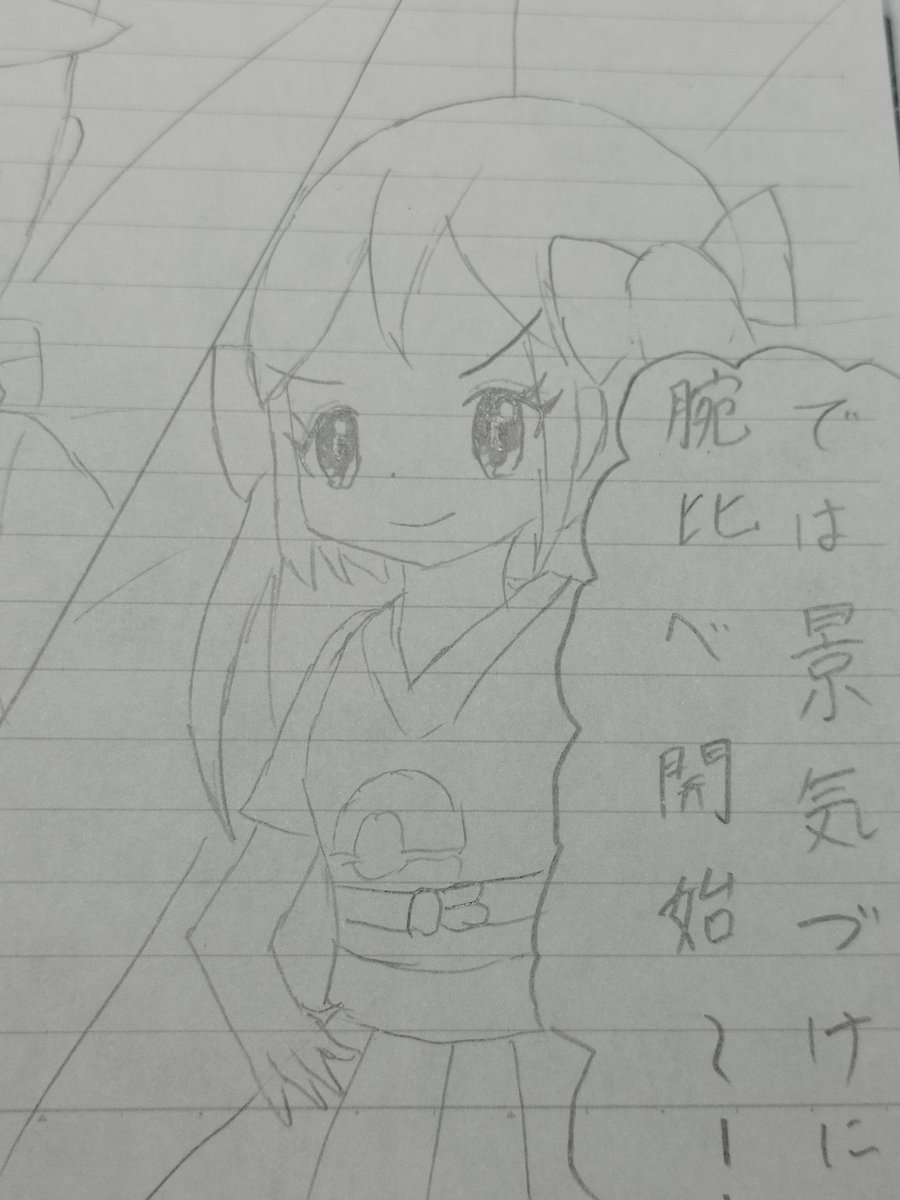 では景気づけに
腕比べ開始〜ー